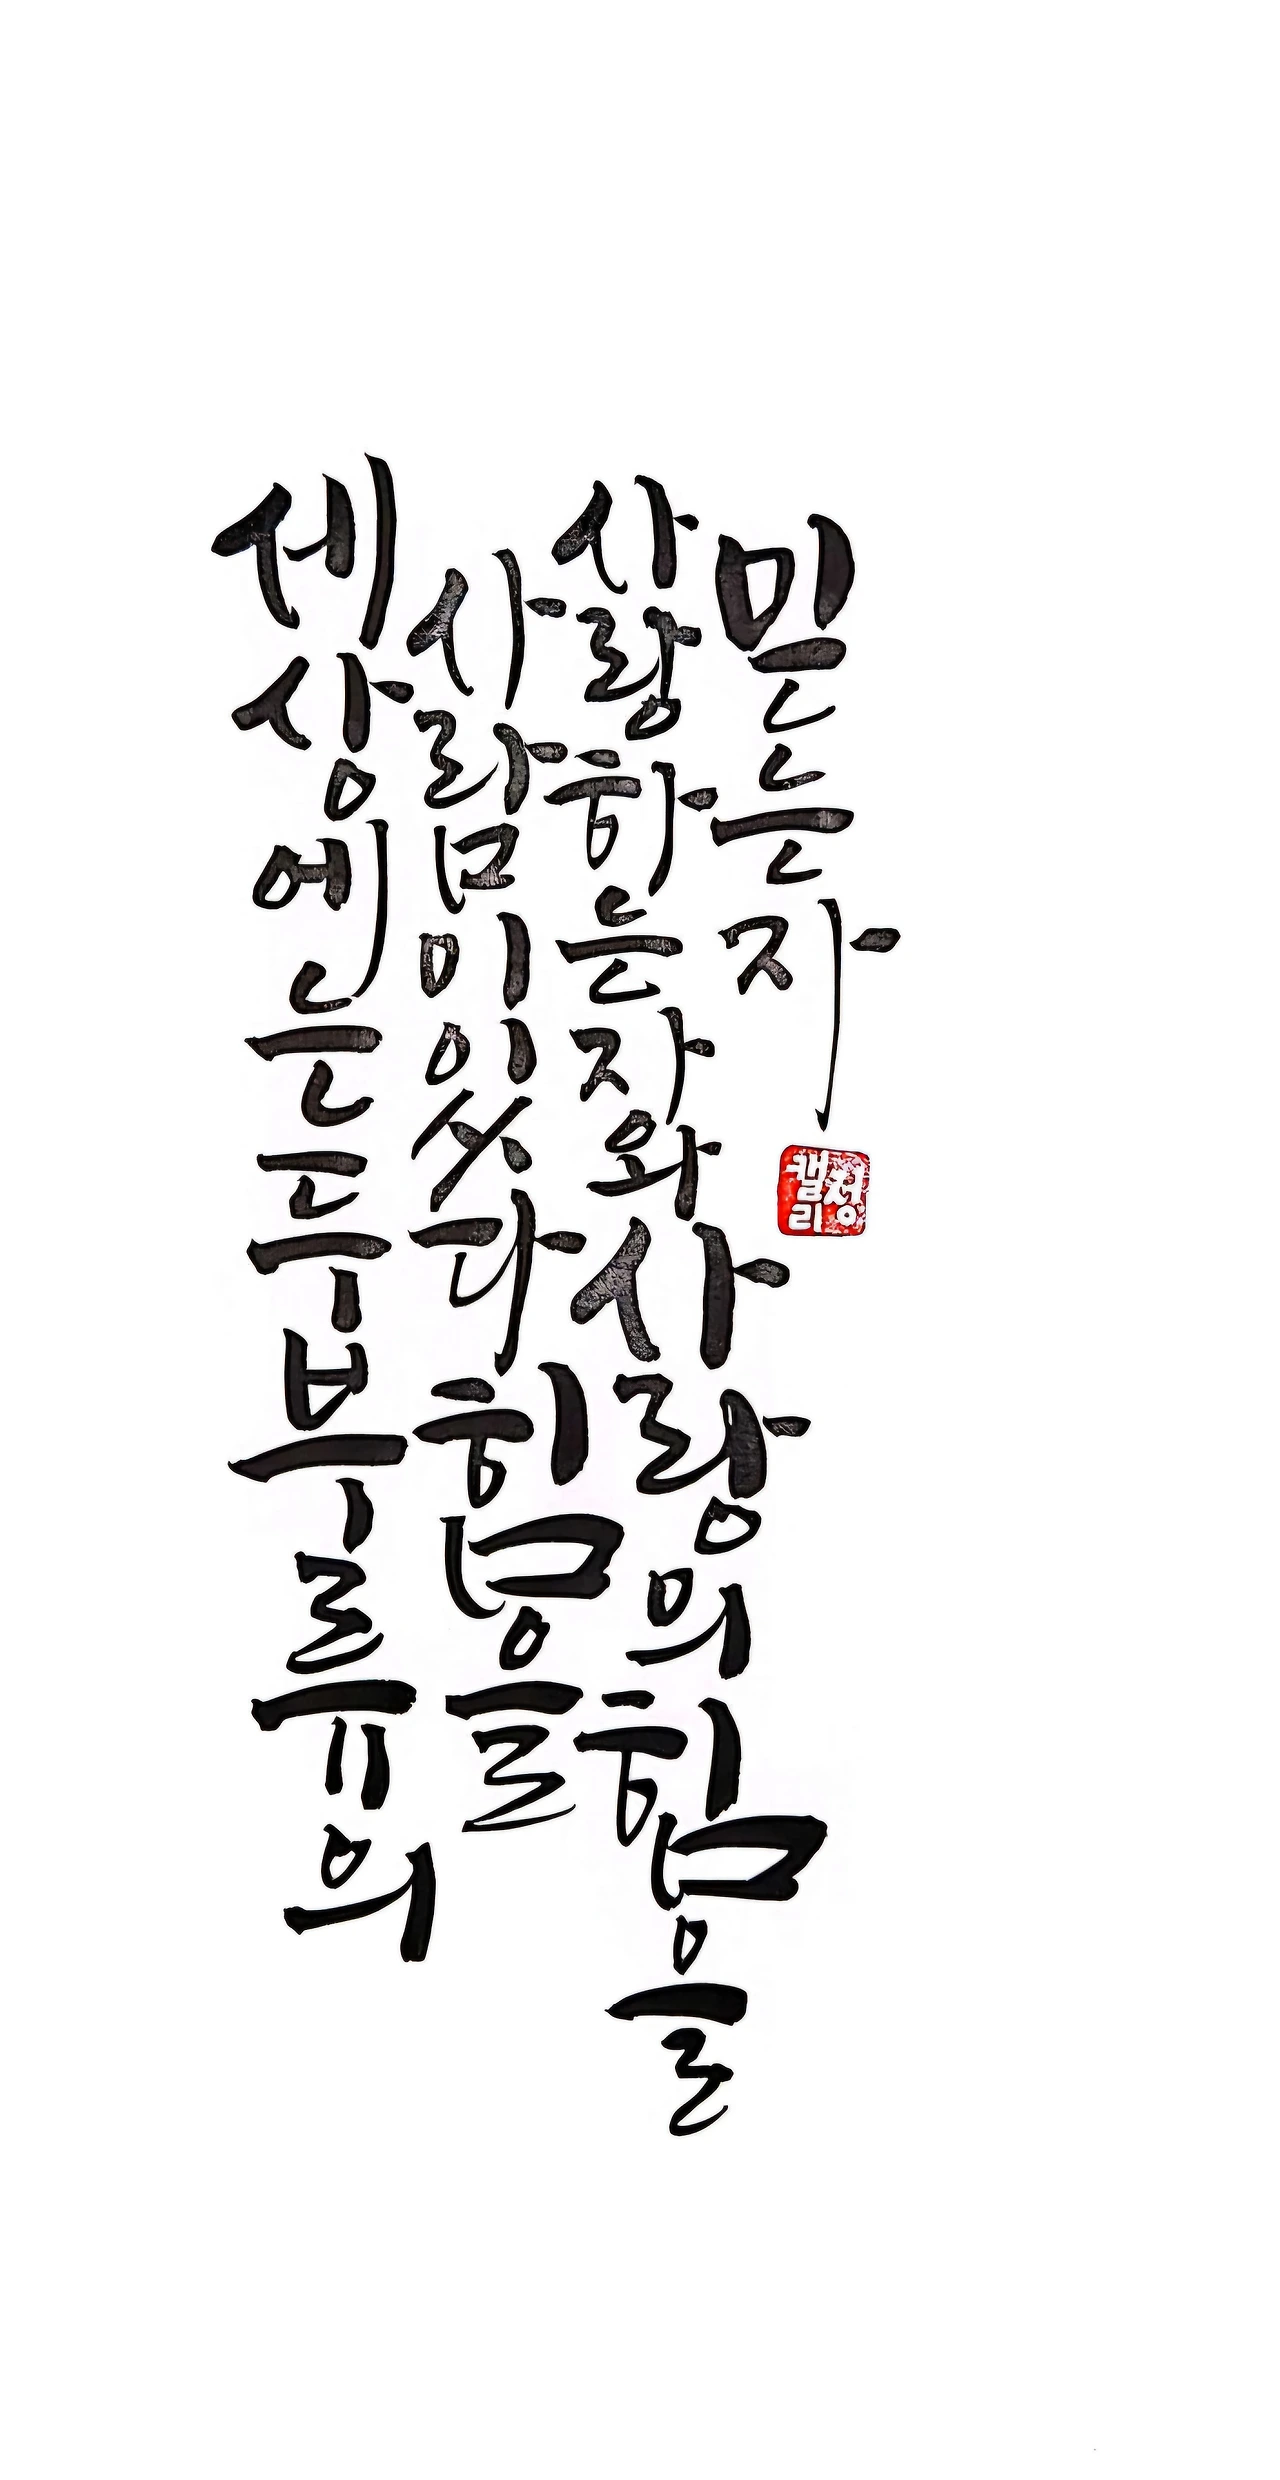 세상에는두부류의
사람이있다힘을
사랑하는자와사랑의힘을
믿는자
캘리